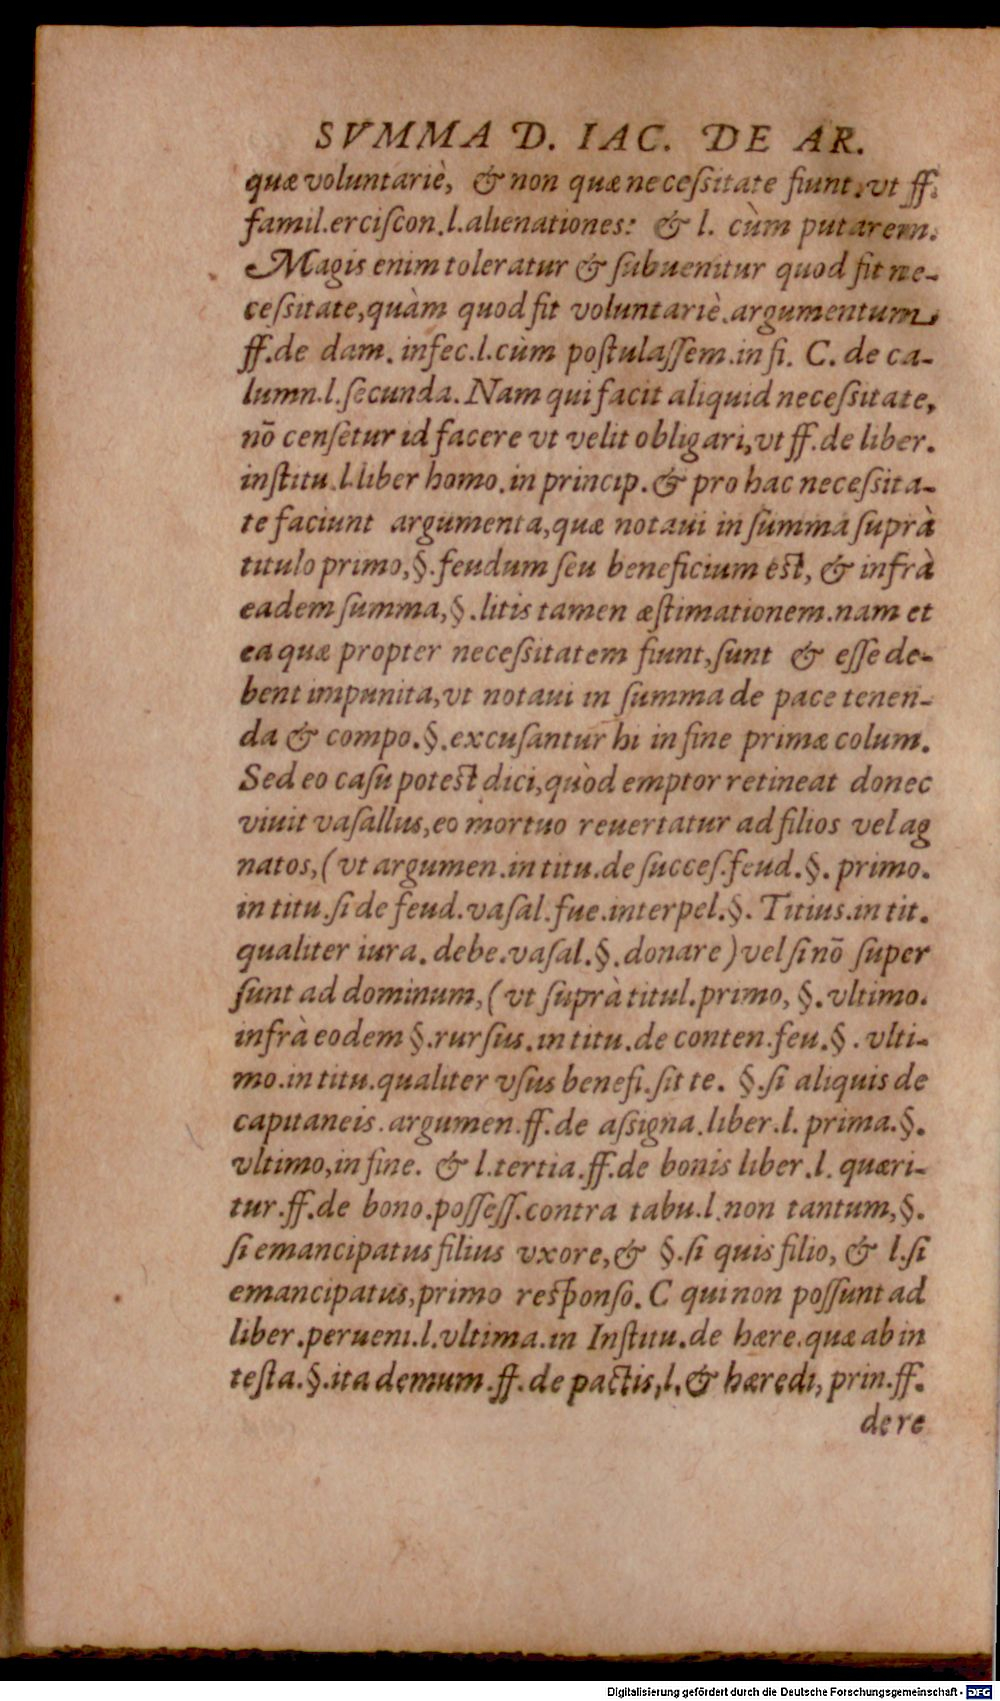 SVMMA D. IAC. DE AR.
quæ voluntariè, & non quæ neceſsitate fiunt. vt ff.
famil. erciſcon. l. alienationes: & l. cùm putarem.
Magis enim toleratur & ſubuenitur quod fit ne-
ceſsitate, quàm quod fit voluntariè. argumentum
ff. de dam. infec. l. cùm poſtulaſſem. in fi. C. de ca-
lumn. l. ſecunda. Nam qui facit aliquid neceſsitate,
nō cenſetur id facere vt velit obligari, vt ff. de liber.
inſtitu. l. liber homo. in princip. & pro hac neceſsita-
te faciunt argumenta, quæ notaui in ſumma ſuprà
titulo primo, §. feudum ſeu beneficium eſt, & infrà
eadem ſumma, §. litis tamen æſtimationem. nam et
ea quæ propter neceſsitatem fiunt, ſunt & eſſe de-
bent impunita, vt notaui in ſumma de pace tenen-
da & compo. §. excuſantur hi in fine primæ colum.
Sed eo caſu poteſt dici, quòd emptor retineat donec
viuit vaſallus, eo mortuo reuertatur ad filios vel ag
natos, (vt argumen. in titu. de ſucceſ. feud. §. primo.
in titu. ſi de feud. vaſal. fue. interpel. §. Titius. in tit.
qualiter iura. debe. vaſal. §. donare) vel ſi nō ſuper
ſunt ad dominum, (vt ſuprà titul. primo, §. vltimo.
infrà eodem §. rurſus. in titu. de conten. feu. §. vlti-
mo. in titu. qualiter vſus benefi. ſit te. §. ſi aliquis de
capitaneis. argumen. ff. de aſsigna. liber. l. prima. §.
vltimo, in fine. & l. tertia. ff. de bonis liber. l. quæri-
tur. ff. de bono. poſſeſſ. contra tabu. l. non tantum, §.
ſi emancipatus filius vxore, & §. ſi quis filio, & l. ſi
emancipatus, primo reſponſo. C qui non poſſunt ad
liber. perueni. l. vltima. in Inſtitu. de hære. quæ ab in
teſta. §. ita demum. ff. de pactis, l. & hæredi, prin. ff.
de re
Digitalisierung gefördert durch die Deutsche Forschungsgemeinschaft - DFG